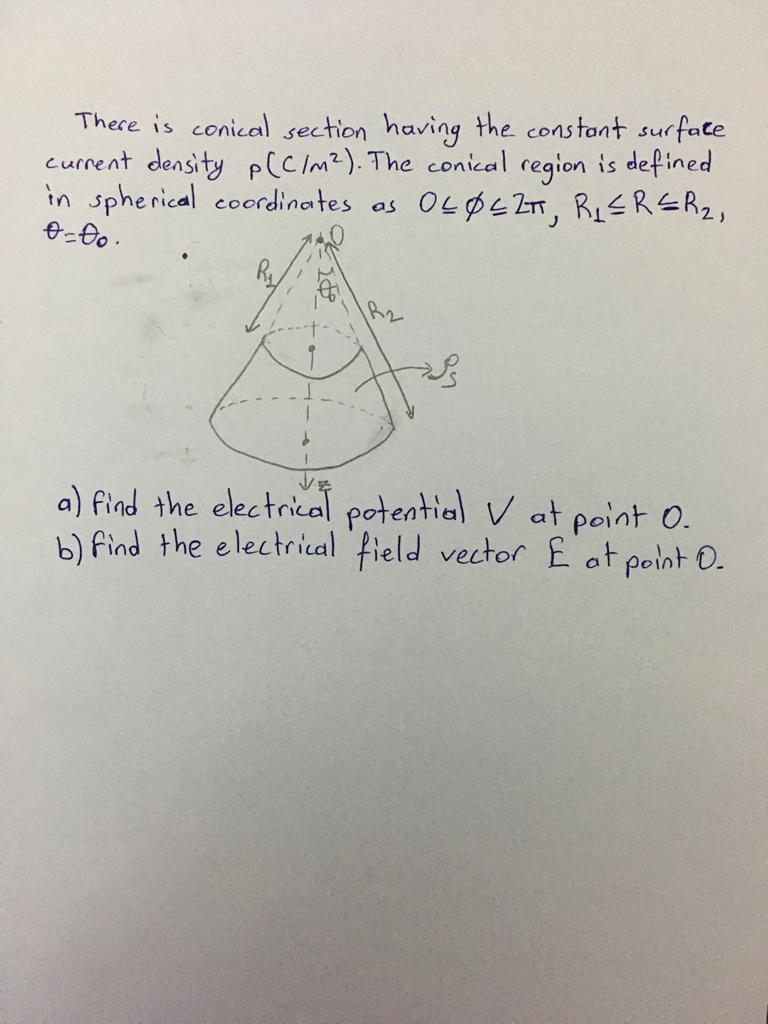 There is conical section having the constant surface
current density ρ(C/m²). The conical region is defined
in spherical coordinates as 0≤φ≤2π, R₁≤R≤R₂,
θ=θ₀.
O
R₁
θ₀
R₂
ρₛ
z
a) find the electrical potential V at point O.
b) find the electrical field vector E at point O.